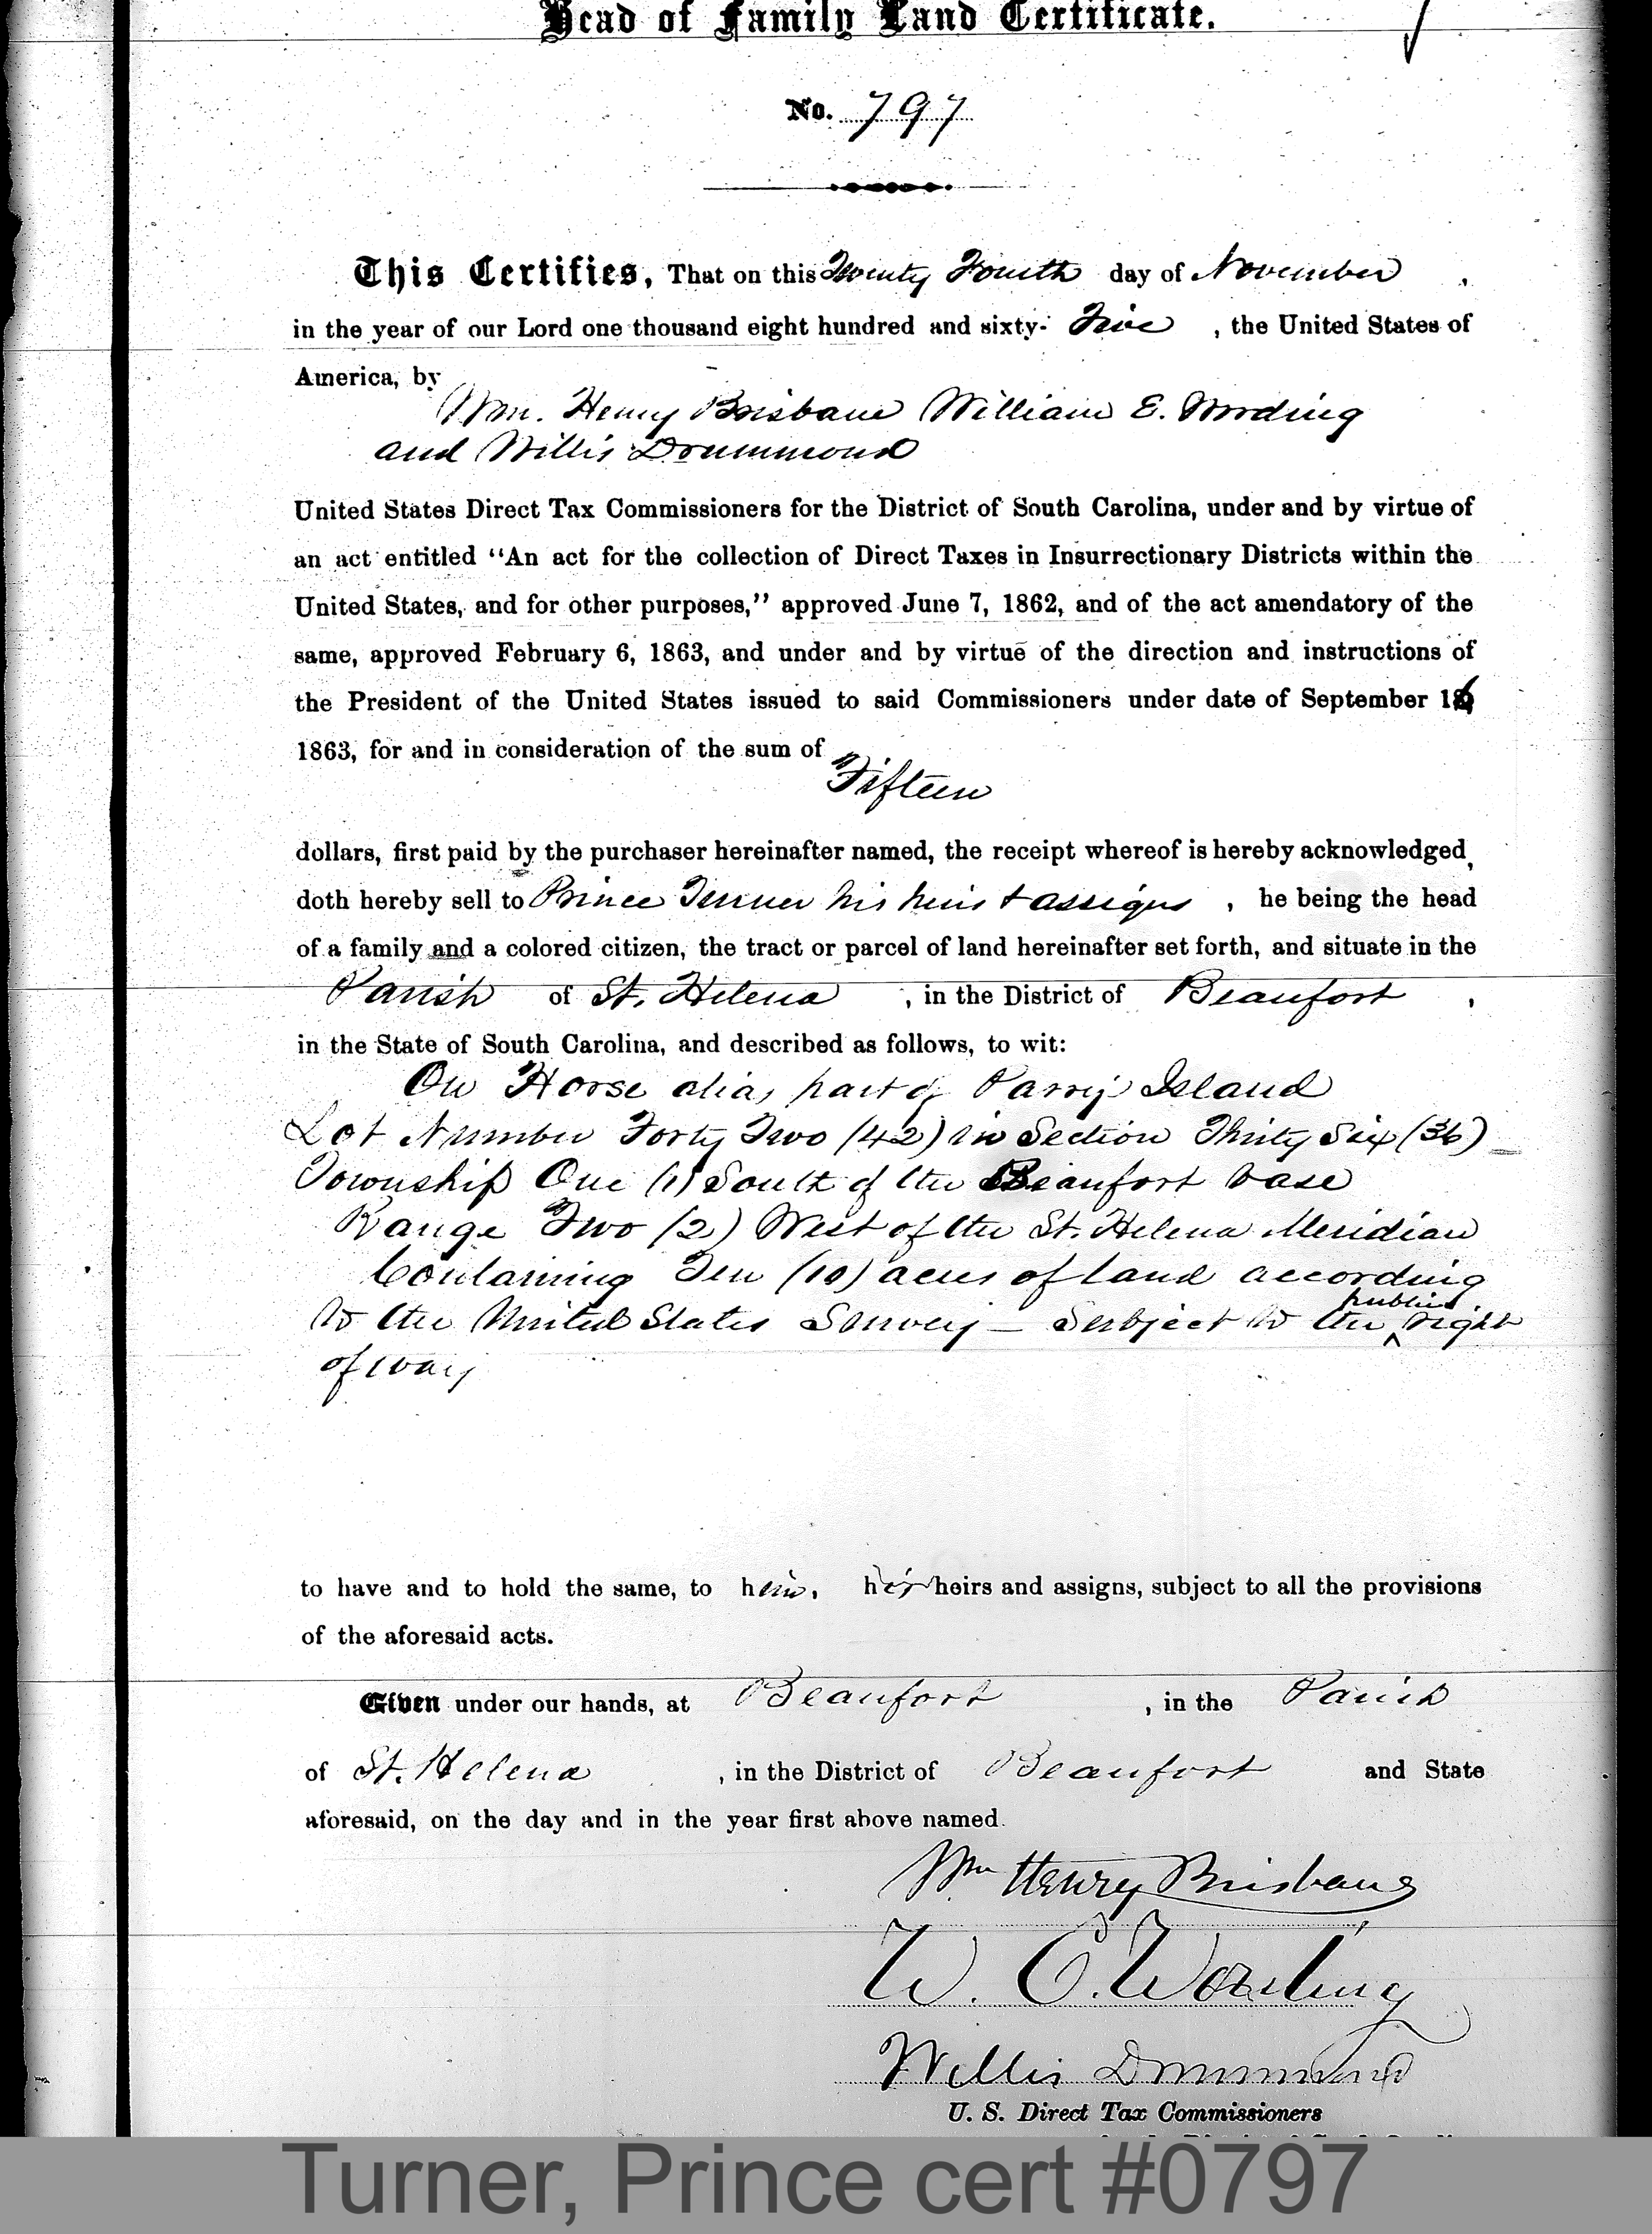 Head of Family Land Certificate.
No. 797
This Certifies, That on this Twenty Fourth day of November ,
in the year of our Lord one thousand eight hundred and sixty- Five , the United States of
America, by
Wm. Henry Brisbane William E. Wording
and Willis Drummond
United States Direct Tax Commissioners for the District of South Carolina, under and by virtue of
an act entitled "An act for the collection of Direct Taxes in Insurrectionary Districts within the
United States, and for other purposes," approved June 7, 1862, and of the act amendatory of the
same, approved February 6, 1863, and under and by virtue of the direction and instructions of
the President of the United States issued to said Commissioners under date of September 16
1863, for and in consideration of the sum of
Fifteen
dollars, first paid by the purchaser hereinafter named, the receipt whereof is hereby acknowledged,
doth hereby sell to Prince Turner his heirs & assigns , he being the head
of a family and a colored citizen, the tract or parcel of land hereinafter set forth, and situate in the
Parish of St. Helena , in the District of Beaufort ,
in the State of South Carolina, and described as follows, to wit:
On Horse alias part of Parry Island
Lot Number Forty Two (42) in Section Thirty Six (36)
Township One (1) South of the Beaufort base
Range Two (2) West of the St. Helena Meridian
Containing Ten (10) acres of land according
to the United States Survey — Subject to the public right
of way
to have and to hold the same, to him, his heirs and assigns, subject to all the provisions
of the aforesaid acts.
Given under our hands, at Beaufort , in the Parish
of St. Helena , in the District of Beaufort and State
aforesaid, on the day and in the year first above named.
Wm Henry Brisbane
W. E. Wording
Willis Drummond
U. S. Direct Tax Commissioners
Turner, Prince cert #0797